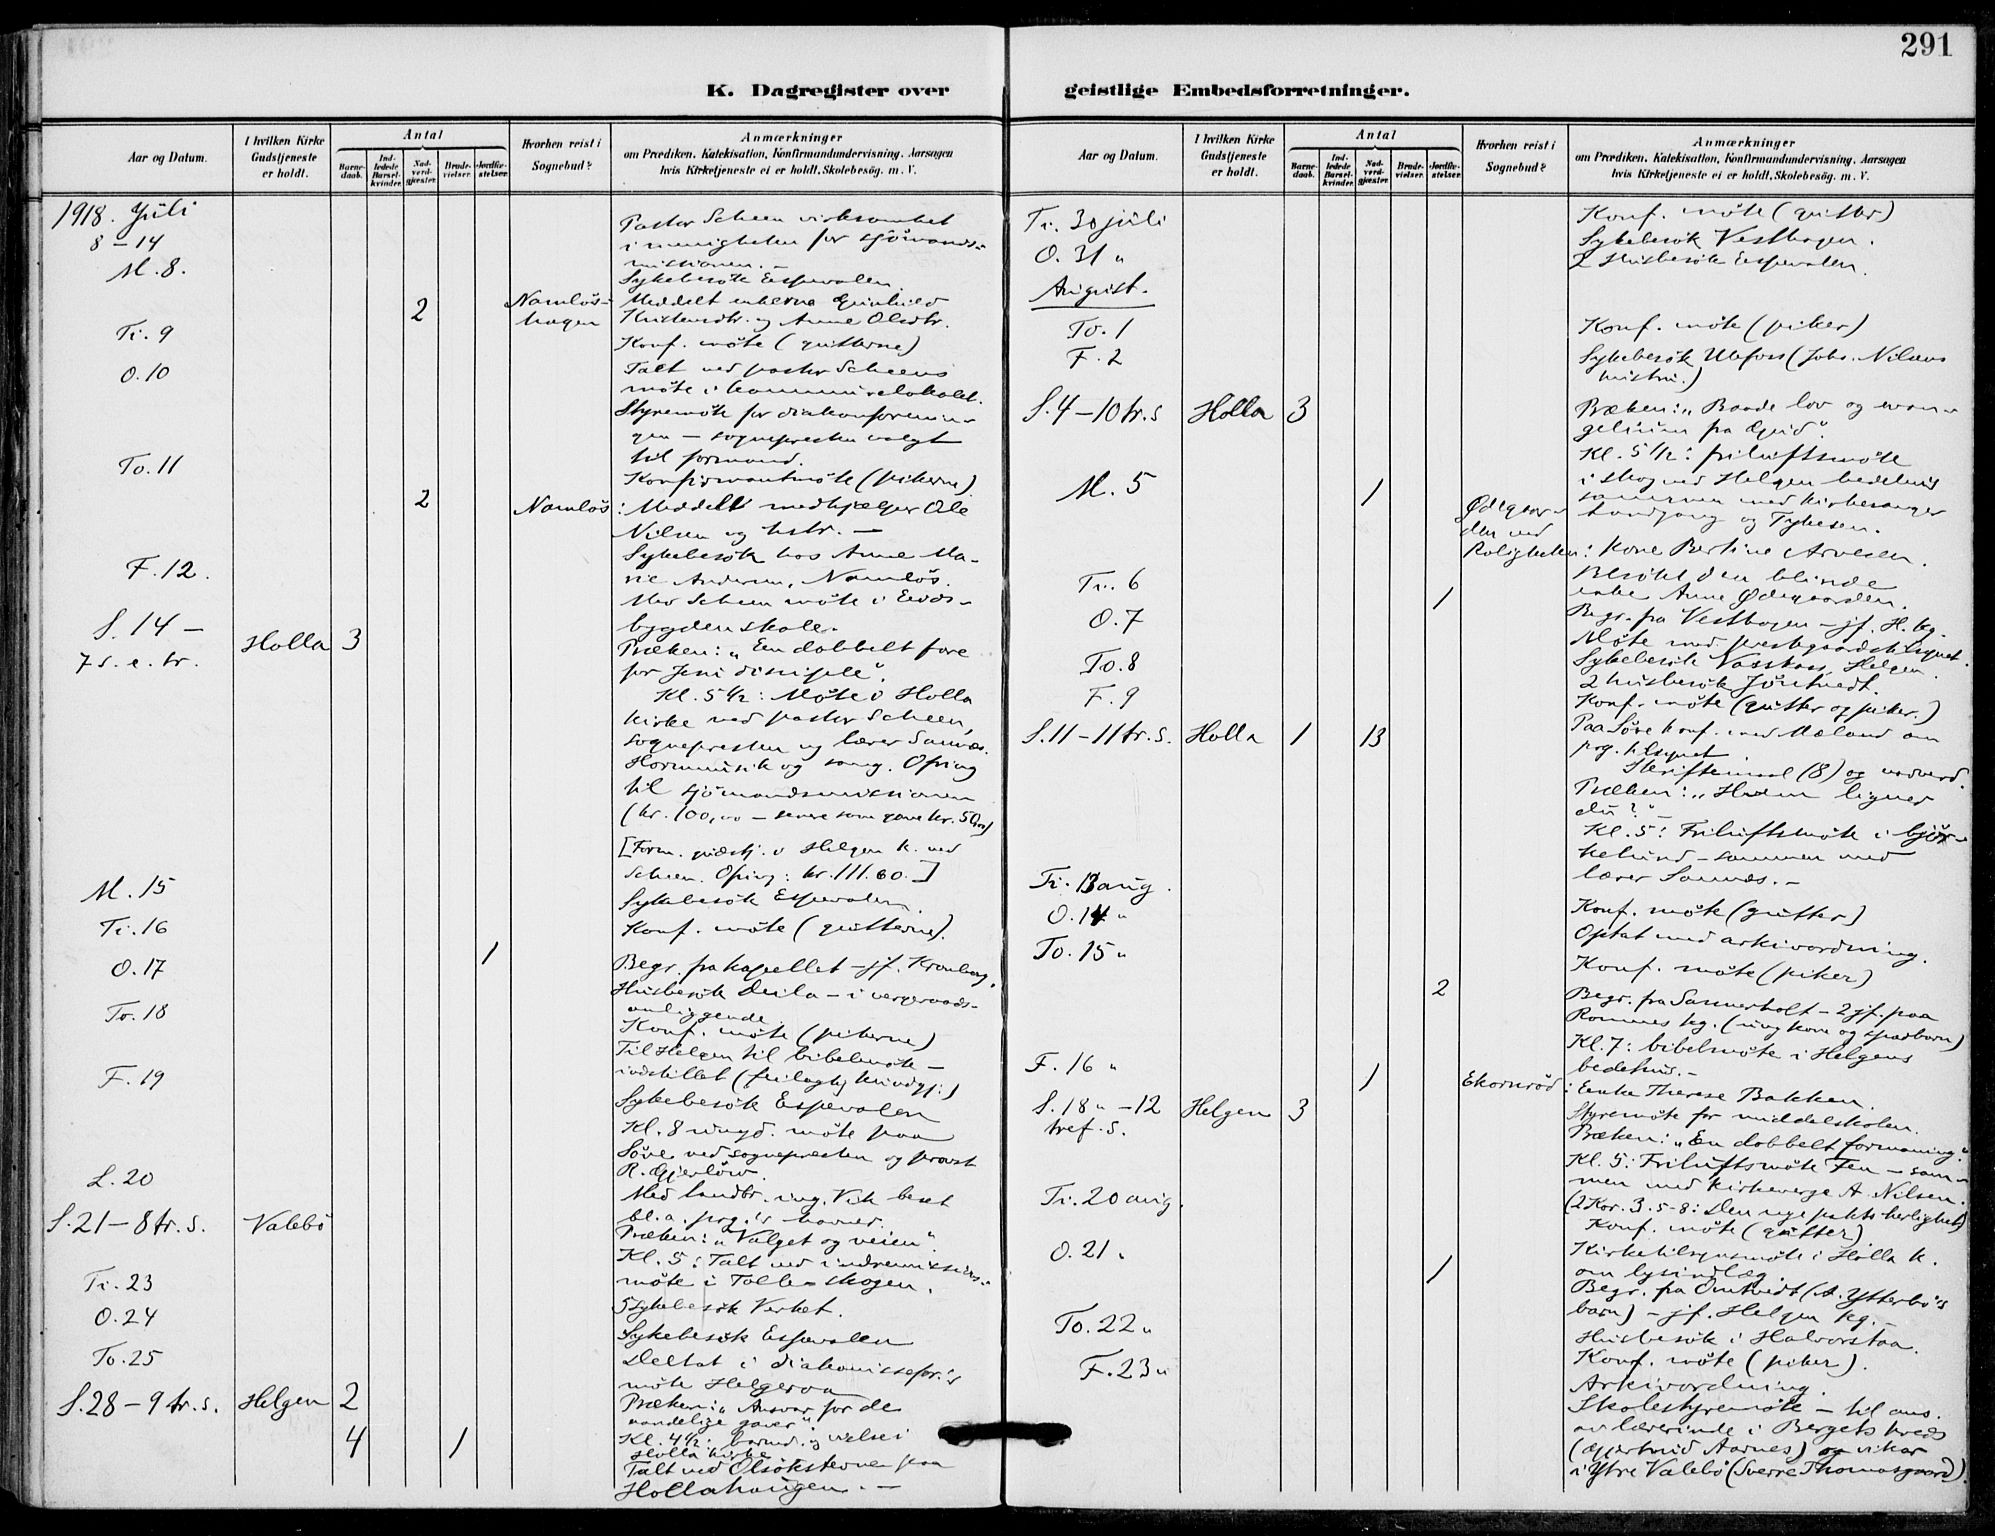 291
K. Dagregister over geistlige Embedsforretninger.
Aar og Datum.
I hvilken Kirke Gudstjeneste er holdt.
Antal
Barnedaab.
Indledede Barselkvinder.
Nadverdgjæster.
Brudevielser.
Jordfæstelser.
Hvorhen reist i Sognebud?
Anmærkninger
om Prædiken, Katekisation, Konfirmandundervisning, Aarsagen
hvis Kirketjeneste ei er holdt, Skolebesøg. m. V.
1918. Juli
8–14 Pastor Scheen virksomhet
i menigheten for sjömands-
missionen. –
M. 8. Sykebesök Espevalen
2 Namlös- Meddelt enkerne Gunhild
hagen Kristensdtr. og Anne Olsdtr.
Ti. 9 Konf. möte (gutterne)
O. 10 Talt ved pastor Scheens
möte i kommunelokalet.
Styremöte for diakonforenin-
gen – sognepresten valgt
til formand.
To. 11 Konfirmantmöte (pikerne)
2 Namlös: Meddelt medhjælper Ole
Nilsen og hstr. –
F. 12. Sykebesök hos Anne Ma-
rie Andersen, Namlös.
Mor Scheen möte i Eids-
bygden skole.
S. 14 – Holla 3
7 s. e. tr. Præken: „En dobbelt fare
for Jesu disciple".
Kl. 5 1/2: Möte i Holla
kirke ved pastor Scheen,
sognepresten og lærer Sannes.
Hornmusik og sang. Ofring
til sjömandsmissionen
(kr. 100,00 – senere som gave kr. 50,00)
[Form. gudstj. i Helgen k. ved
Scheen. Ofring: kr. 111.60.]
M. 15 Sykebesök Espevalen.
Ti. 16 Konf. möte (gutterne).
O. 17 1 Begr. fra kapellet – jf. Kronborg.
Husbesök Deila – i vergeraads-
anliggende.
To. 18 Konf. möte (pikerne)
Til Helgen til bibelmöte –
indstillet (feilagtig kundgj.)
F. 19 Sykebesök Espevalen
Kl. 8 ungd. möte paa
Söve ved sognepresten og provst
R. Gjerlöw.
L. 20 Med landbr. ing. Vik beset
bl. a. prg.'s havner.
S. 21 – 8 tr. s. Valebö Præken: „Valget og veien".
Kl. 5: Talt ved indremissions-
möte i Tolleskogen.
Ti. 23 5 Sykebesök Verket.
O. 24 Sykebesök Espevalen
To. 25 Deltat i diakonissefor.'s
möte Helgeroa
S. 28 – 9 tr. s. Helgen 2 Præken: „Ansvar for de
aandelige gaver"
4 1 Kl. 4 1/2: barned. og vielse i
Holla kirke
Talt ved Olsokstevnet paa
Hollahaugen. –
Aar og Datum.
I hvilken Kirke Gudstjeneste er holdt.
Antal
Barnedaab.
Indledede Barselkvinder.
Nadverdgjæster.
Brudevielser.
Jordfæstelser.
Hvorhen reist i Sognebud?
Anmærkninger
om Prædiken, Katekisation, Konfirmandundervisning, Aarsagen
hvis Kirketjeneste ei er holdt, Skolebesøg. m. V.
Ti. 30 juli Konf. möte (gutter)
O. 31 „ Sykebesök Vesthagen.
2 Husbesök Espevalen.
August.
To. 1 Konf. möte (piker)
F. 2 Sykebesök Ulefoss (Johs. Nilsens
hustru.)
S. 4 – 10 tr. s Holla 3 Præken: „Baade lov og evan-
gelium fra Gud".
Kl. 5 1/2: friluftsmöte
i skog ved Helgen bedehus
sammen med kirkesanger
Landgang og Tykesen.
M. 5 1 Ödegaar-
den ved
Roligheten: Kone Bertine Arvesen.
Besökt den blinde
enke Anne Ödegaarden.
Ti. 6 1 Begr. fra Vesthagen – jf. H. kg.
O. 7 Möte med prestegaardstilsynet.
To. 8 Sykebesök Naskas, Helgen.
2 husbesök Jörstvedt.
F. 9 Konf. möte (gutter og piker.)
Paa Söve konf. med Mæland om
prg. tilsynet.
S. 11 – 11 tr. s. Holla 1 13 Skriftemaal (8) og nadverd.
Præken: „Hvem ligner
du?" –
Kl. 5: Friluftsmöte i björ-
kelund – sammen med
lærer Sannes. –
Ti. 13 aug. Konf. möte (gutter)
O. 14 „ Optat med arkivordning.
To. 15 „ Konf. möte (piker)
2 Begr. fra Sannerholt – 2 jf. paa
Romnes kg. (ung kone og spædbarn)
Kl. 7: bibelmöte i Helgens
bedehus. –
F. 16 „ 1 Ekornröd: Enke Therese Bakken.
Styremöte for middelskolen.
S. 18 „ – 12 Helgen 3 Præken: „En dobbelt formaning."
tref. s. Kl. 5: Friluftsmöte Fen – sam-
men med kirkeverge A. Nilsen.
(2 Kor. 3. 5-8: Den nye pakts herlighet)
Ti. 20 aug. Konf. möte (gutter)
O. 21 „ Kirketilsynsmöte i Holla k.
om lysindlæg
1 Begr. fra Omtvedt (A. Ytterbö's
barn) – jf. Helgen kg. –
To. 22 „ Husbesök i Halvorstaa.
Konf. möte (piker).
F. 23 „ Arkivordning.
Skolestyremöte – til ans.
av lærerinde i Bergets kreds
(Gjertrud Aarnes) og vikar
i Ytre Valebö (Sverre Thomasgaard)